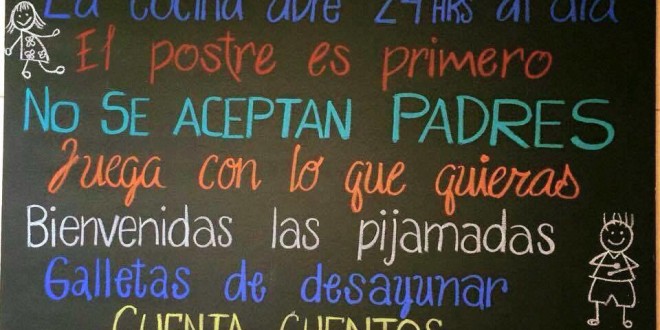 La cocina abre 24 HRS al día
El postre es primero
NO SE ACEPTAN PADRES
Juega con lo que quieras
Bienvenidas las pijamadas
Galletas de desayunar
CUENTA CUENTOS